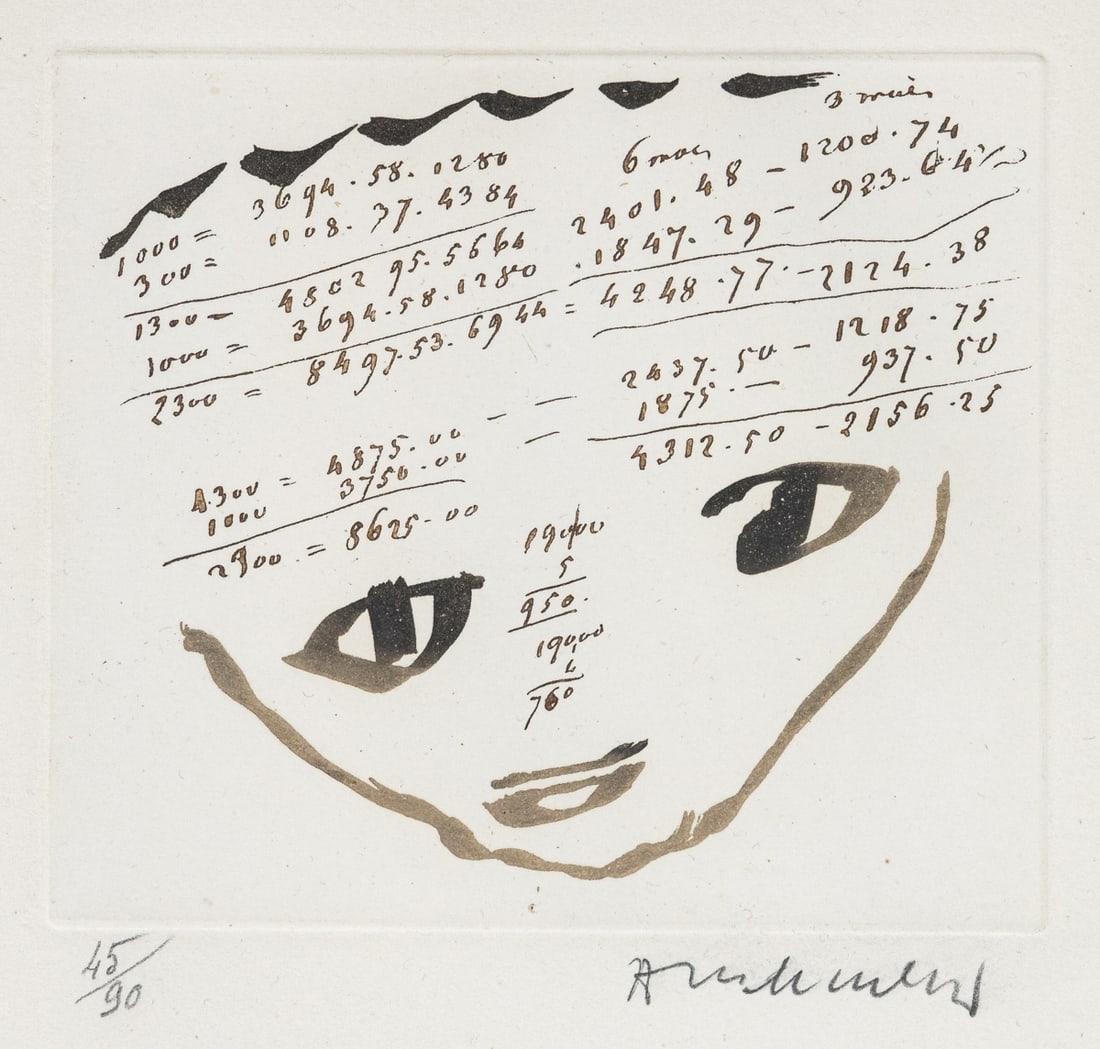 3 mois
6 mois
1000 = 3694.58.1280 2401.48 - 1200.74
300 = 1108.37.4384 .1847.29 - 923.64½
1300 - 4802 95.5664 4248.77.-2124.38
1000 = 3694.58.1280
2300 = 8497.53.6944 =
2437.50 - 1218.75
1875.— 937.50
4312.50 - 2156.25
1300 = 4875.00 - -
1000 3750.00 -
2300 = 8625.00
19000
5
950.
19000
4
760
45/90